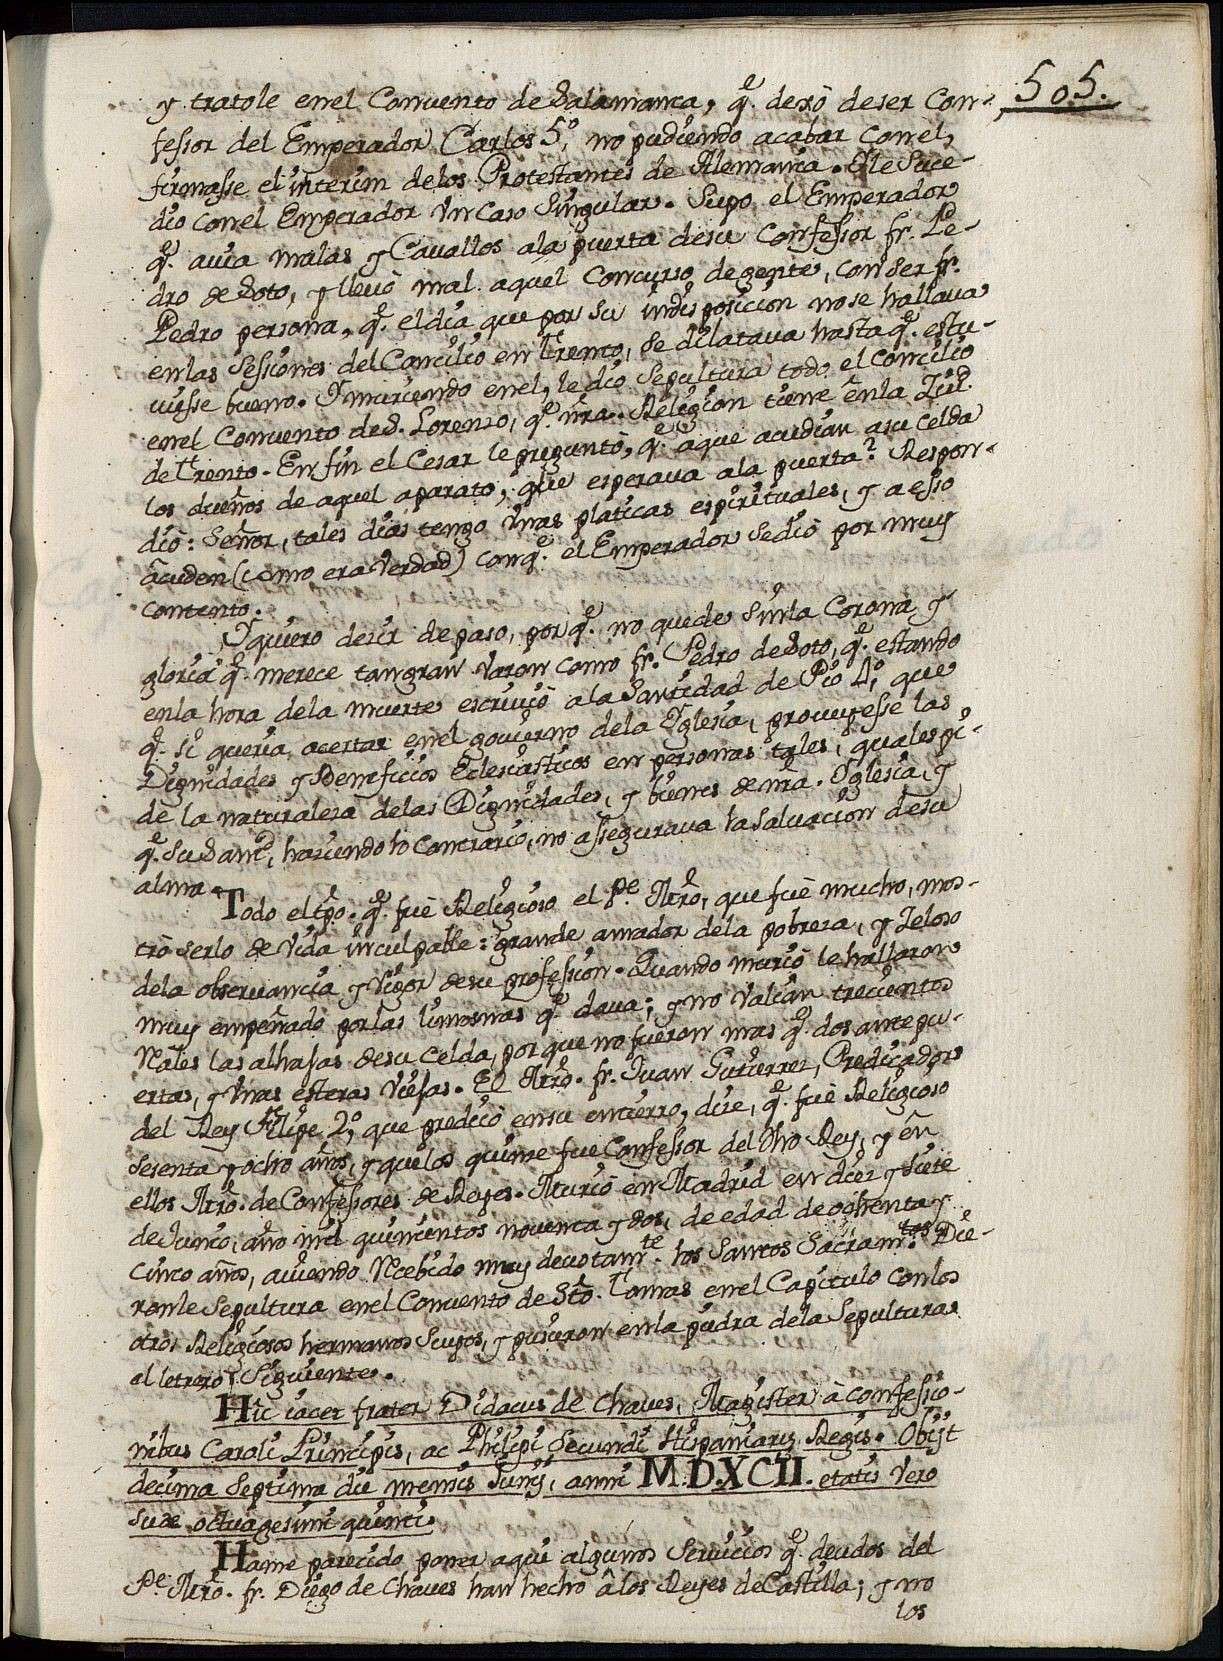 505.
y tratole enel Convento de Salamanca, q̃. dexò deser Con-
fessor del Emperador Carlos 5º, no pudiendo acabar con èl,
firmasse el interim delos Protestantes de Alemania. I le suce-
dio conel Emperador vn caso singular. Supo el Emperador
q̃. auia mulas y Cavallos ala puerta desu Confessor fr. Pe-
dro de Soto, y lleuò mal aquel concurso degente, con ser fr.
Pedro persona, q̃. el dia que por su indisposicion nose hallaua
enlas Sessiones del Concilio en Trento, se dilataua hasta q̃. estu-
uiesse bueno. I muriendo enel, le diò sepultura todo el Concilio
enel Convento de S. Lorenzo, q̃. ñra. Religion tiene enla Ziud.
de Trento. En fin el Cesar le preguntò, q̃. aque acudian asu celda
los dueños de aquel aparato, que esperaua ala puerta? Respon-
diò: Señor, tales dias tengo vnas platicas espirituales, y a esso
acuden (como era verdad) conq̃. el Emperador sediò por muy
contento.
I quiero desir de paso, porq̃. no quede sin la Corona y
gloria q̃. merece tan gran varon como fr. Pedro de Soto, q̃. estando
enla hora dela muerte escriuiò ala Santidad de Pio 4º, que
q̃. si queria acertar enel gouierno dela Iglesia, proueyesse las
Dignidades y Beneficios Eclesiasticos en personas tales, quales pi-
de la naturaleza delas Dignidades, y bienes de ñra. Iglesia, y
q̃. su Santd, haziendo lo contrario, no assegurava la saluacion desu
alma.
Todo el tpo. q̃. fuè Religioso el Pe. Mrõ, que fuè mucho, mos-
trò serlo de vida inculpable: grande amador dela pobreza, y zeloso
dela obseruancia y vigor desu profession. Quando muriò le hallaron
muy empeñado por las limosnas q̃. daua; y no valian trecientos
Reales las alhajas desu celda, por que no fueron mas q̃. dos antepu-
ertas, y vnas esteras viejas. El Mrõ. fr. Juan Gutierrez, Predicador
del Rey Filipe 2º, que predicò ensu entierro, dize, q̃. fuè Religioso
sesenta y ocho años, y quelos quinze fue Confessor del dho Rey, y en
ellos Mrõ. de Confessores de Reyes. Muriò en Madrid en diez y siete
de Junio, año mil quinientos noventa y dos, de edad de ochenta y
cinco años, auiendo recebido muy devotamte. los Santos Sacramtos. Die-
ronle sepultura enel Convento de Sto. Tomas enel Capitulo con los
otros Religiosos hermanos suyos, y pusieron enla piedra dela sepultura
el letrero siguiente.
Hic iacet frater Didacus de Chaues, Magister à confessio-
nibus Caroli Principis, ac Philipi Secundi Hispaniarũ Regis. Obijt
decima septima die mensis Junij, anni M.D.XCII. etatis vero
suæ octuagesimi quinti.
Hame parecido poner aqui algunos seruicios q̃. deudos del
Pe. Mrõ. fr. Diego de Chaves han hecho âlos Reyes de Castilla; y no
los